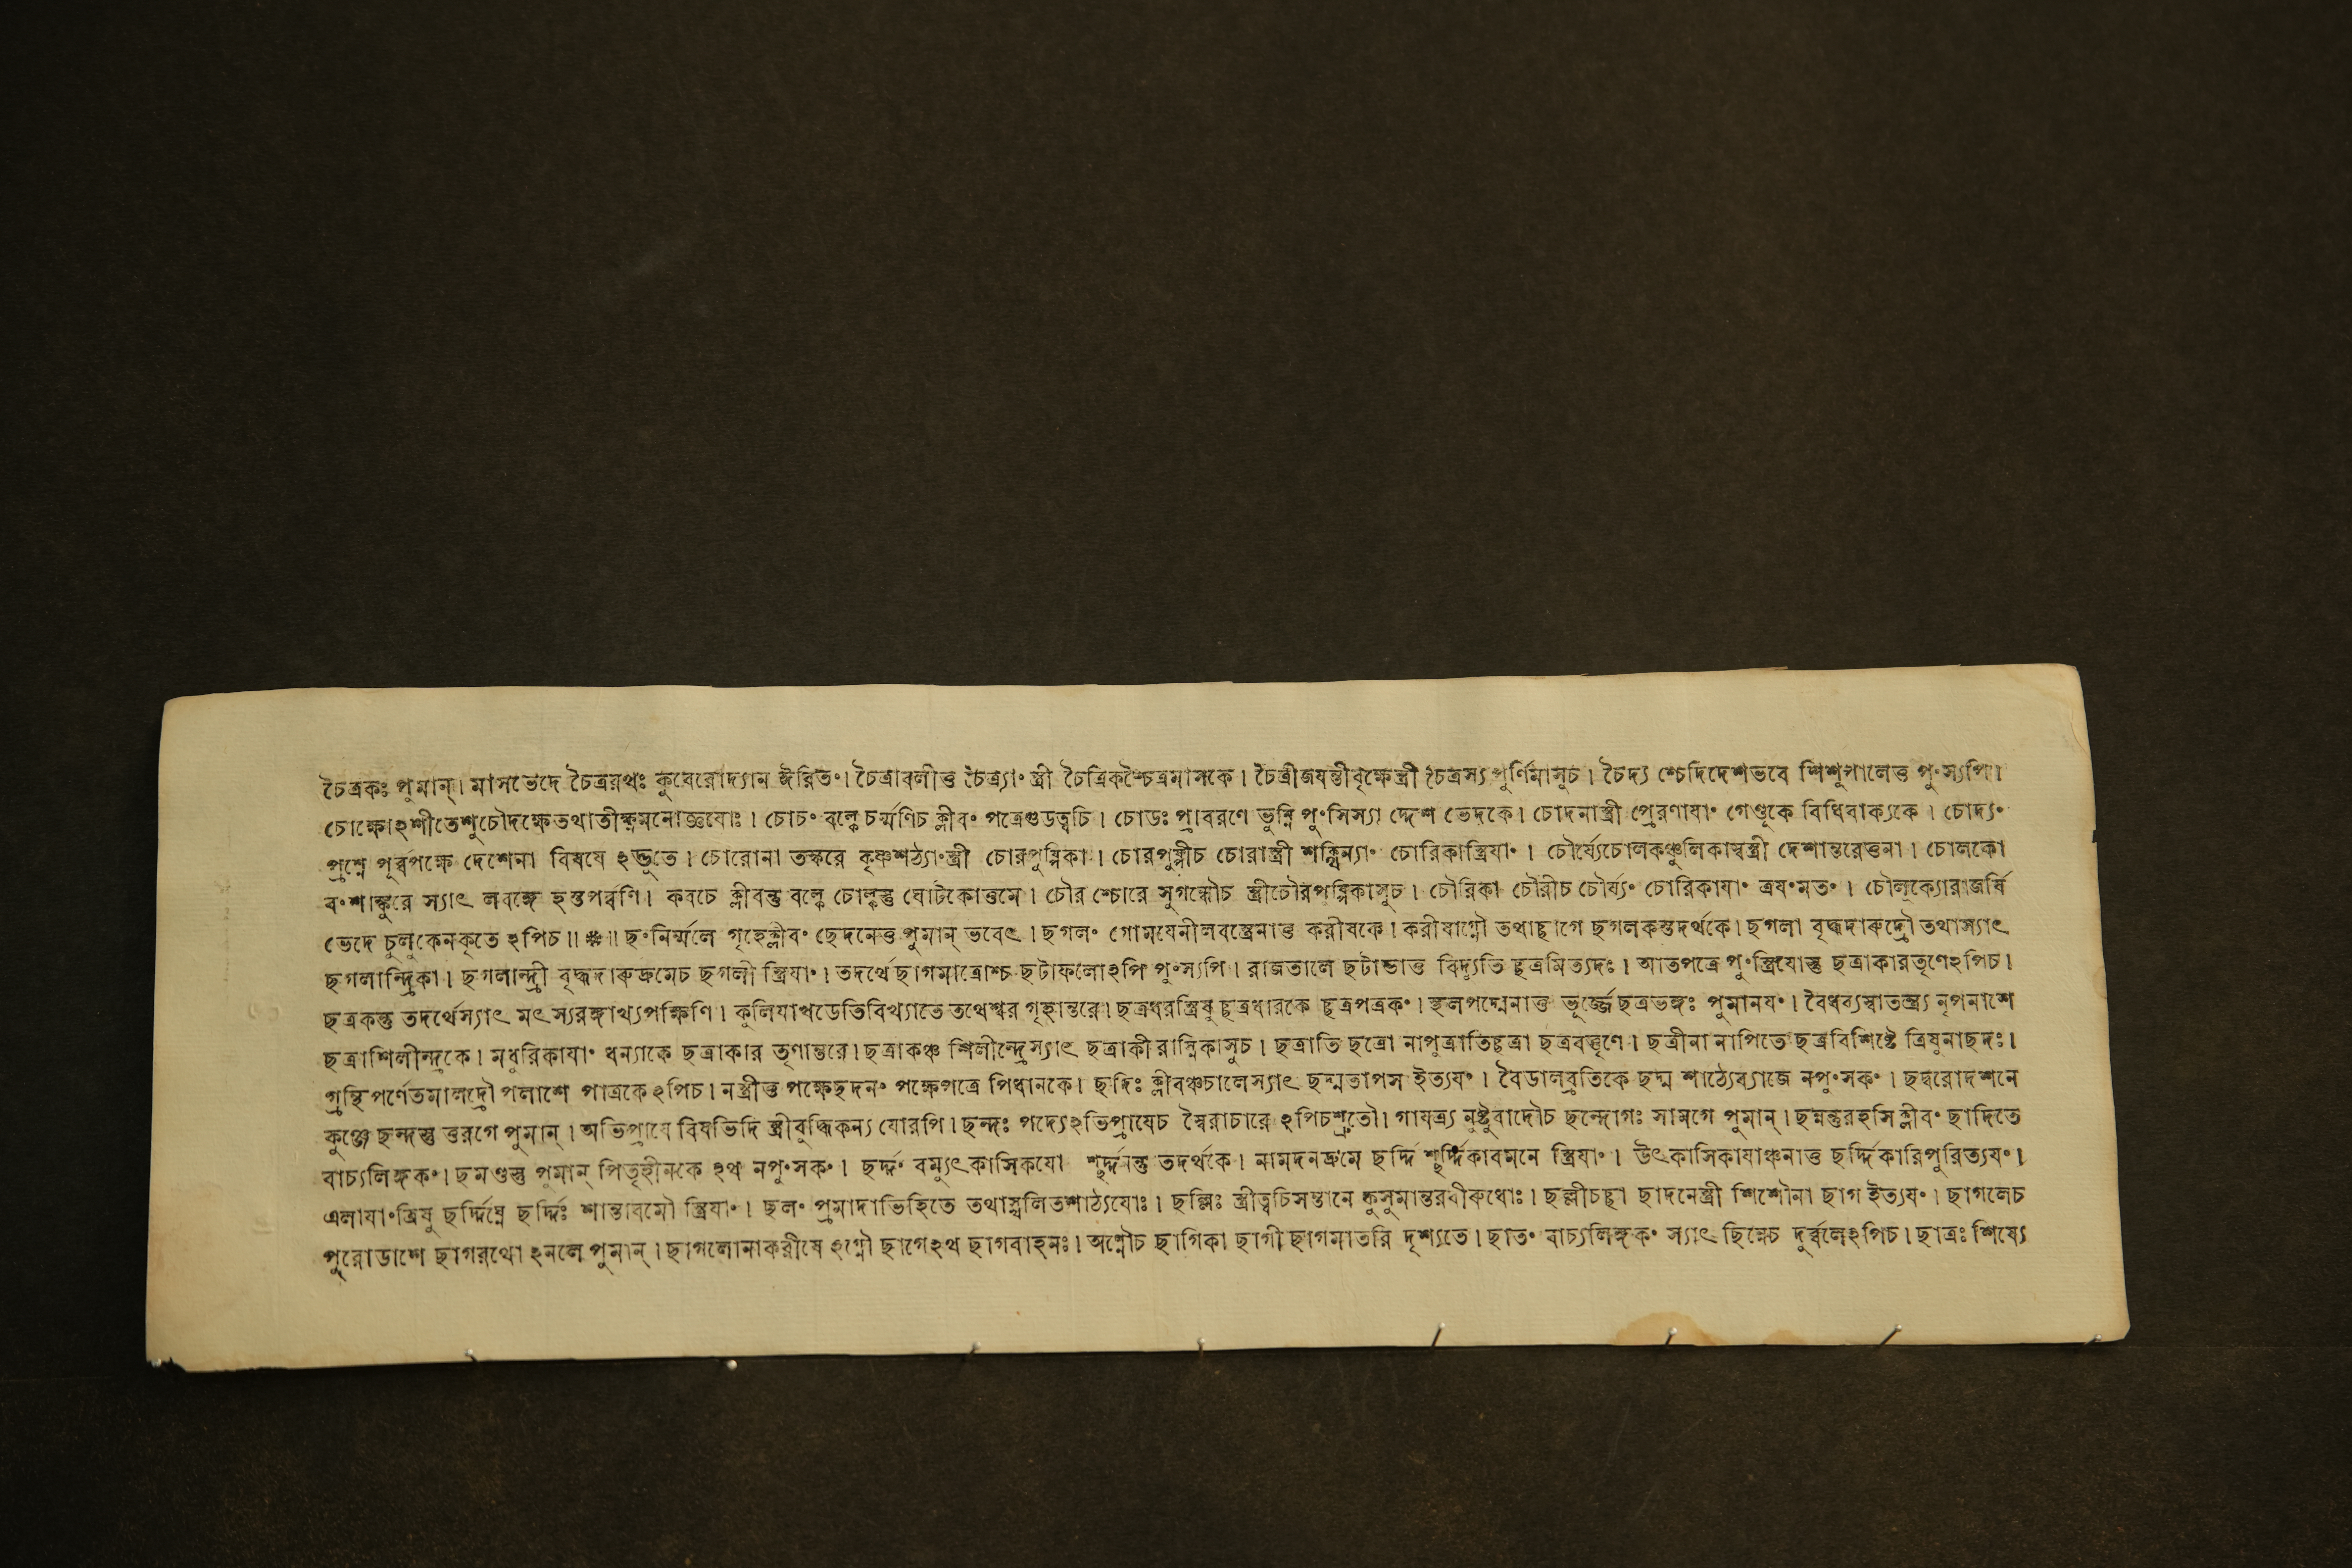 চৈত্রকঃ পুমান্। মাসভেদে চৈত্ররথঃ কুবেরোদ্যান ঈরিতং। চৈত্রাবলীত্ত চৈত্র্যাং স্ত্রী চৈত্রিকশ্চৈত্রমাসকে। চৈত্রীজযন্তীবৃক্ষেস্ত্রী চৈত্রস্য পুর্ণিমাসুচ। চৈদ্য শ্চেদিদেশভবে শিশুপালেত্ত পুংস্যপি।
চোক্ষোঽশীতেশুচৌদক্ষেতথাতীক্ষ্ণমনোজ্ঞযোঃ। চোচং বল্কে চর্ম্মণিচ ক্লীবং পত্রেগুডত্বচি। চোডঃ প্রাবরণে ভুম্নি পুংসিস্যা দ্দেশ ভেদকে। চোদনাস্ত্রী প্রেরণাযাং গেণ্ডুকে বিধিবাক্যকে। চোদ্যং
প্রশ্নে পূর্ব্বপক্ষে দেশেনা বিষযে ঽদ্ভুতে। চোরোনা তস্করে কৃষ্ণশঠ্যাংস্ত্রী চোরপুষ্পিকা। চোরপুষ্পীচ চোরাস্ত্রী শঙ্খিন্যাং চোরিকাস্ত্রিযাং। চৌর্য্যেচোলকঞ্চুলিকাম্বস্ত্রী দেশান্তরেত্তনা। চোলকো
বংশাঙ্কুরে স্যাৎ লবঙ্গে হস্তপর্ব্বণি। কবচে ক্লীবন্তু বল্কে চোল্কন্তু ঘোটকোত্তমে। চৌর শ্চোরে সুগন্ধৌচ স্ত্রীচৌরপুষ্পিকাসুচ। চৌরিকা চৌরীচ চৌর্য্যং চোরিকাযাং ত্রযংমতং। চৌলুক্যোরাজর্ষি
ভেদে চুলুকেনকৃতে ঽপিচ॥ ❋॥ ছংনির্ম্মলে গৃহেক্লীবং ছেদনেত্ত পুমান্ ভবেৎ। ছগলং গোমযেনীলবস্ত্রেনাত্ত করীষকে। করীষাগ্নৌ তথাচ্ছাগে ছগলকস্তদর্থকে। ছগলা বৃদ্ধদারুদ্রৌ তথাস্যাৎ
ছগলান্দ্রিকা। ছগলান্দ্রী বৃদ্ধদারুদ্রুমেচ ছগলী স্ত্রিযাং। তদর্থেছাগমাত্রোশ্চ ছটাফলোঽপি পুংস্যপি। রাজতালে ছটাভাত্ত বিদ্যুতি চ্ছত্রমিত্যদঃ। আতপত্রে পুংস্ত্রিযোস্তু ছত্রাকারতৃণেঽপিচ।
ছত্রকন্তু তদর্থেস্যাৎ মৎস্যরঙ্গাখ্যপক্ষিণি। কুলিযাখডেতিবিখ্যাতে তথেশ্বর গৃহান্তরে। ছত্রধরস্ত্রিষু চ্ছত্রধারকে চ্ছত্রপত্রকং। স্থলপদ্মেনাত্ত ভূর্জ্জেছত্রভঙ্গঃ পুমানযং। বৈধব্যস্বাতন্ত্র্য নৃপনাশে
ছত্রাশিলীন্দ্রকে। মধুরিকাযাং ধন্যাকে ছত্রাকার তৃণান্তরে। ছত্রাকঞ্চ শিলীন্দ্রেস্যাৎ ছত্রাকীরাস্নিকাসুচ। ছত্রাতি ছত্রো নাপুত্রাতিচ্ছত্রা ছত্রবত্তৃণে। ছত্রীনা নাপিতে ছত্রবিশিষ্টে ত্রিষুনাছদঃ।
গ্রন্থিপর্ণেতমালদ্রৌ পলাশে পাত্রকেঽপিচ। নস্ত্রীত্ত পক্ষেছদনং পক্ষেপত্রে পিধানকে। ছদিঃ ক্লীবঞ্চচালেস্যাৎ ছদ্মতাপস ইত্যযং। বৈডালব্রতিকে ছদ্ম শাঠ্যেব্যাজে নপুংসকং। ছদ্বরোদশনে
কুঞ্জে ছন্দস্তু ত্তরগে পুমান্। অভিপ্রাযে বিষভিদি স্ত্রীবুদ্ধিকন্য যোরপি। ছন্দঃ পদ্যেঽভিপ্রাযেচ স্বৈরাচারে ঽপিচশ্রুতৌ। গাযত্র্য নুষ্টুবাদৌচ ছন্দোগঃ সামগে পুমান্। ছন্নন্তুরহসি ক্লীবং ছাদিতে
বাচ্যলিঙ্গকং। ছমণ্ডস্তু পুমান্ পিতৃহীনকে ঽথ নপুংসকং। ছর্দ্দং বম্যুৎকাসিকযো শ্ছর্দ্দনন্তু তদর্থকে। নামদনদ্রুমে ছর্দ্দি শ্ছর্দ্দিকাবমনে স্ত্রিযাং। উৎকাসিকাযাঞ্চনাত্ত ছর্দ্দিকারিপুরিত্যযং।
এলাযাংত্রিষু ছর্দ্দিঘ্নে ছর্দ্দিঃ শান্তাবমৌ স্ত্রিযাং। ছলং প্রমাদাভিহিতে তথাস্খলিতশাঠ্যযোঃ। ছল্লিঃ স্ত্রীত্বচিসন্তানে কুসুমান্তরবীরুধোঃ। ছল্লীচচ্ছা ছাদনেস্ত্রী শিশৌনা ছাগ ইত্যযং। ছাগলেচ
পুরোডাশে ছাগরথো ঽনলে পুমান্। ছাগলোনাকরীষে ঽগ্নৌ ছাগেঽথ ছাগবাহনঃ। অগ্নৌচ ছাগিকা ছাগী ছাগমাতরি দৃশ্যতে। ছাতং বাচ্যলিঙ্গকং স্যাৎ ছিন্নেচ দুর্ব্বলেঽপিচ। ছাত্রঃ শিষ্যে